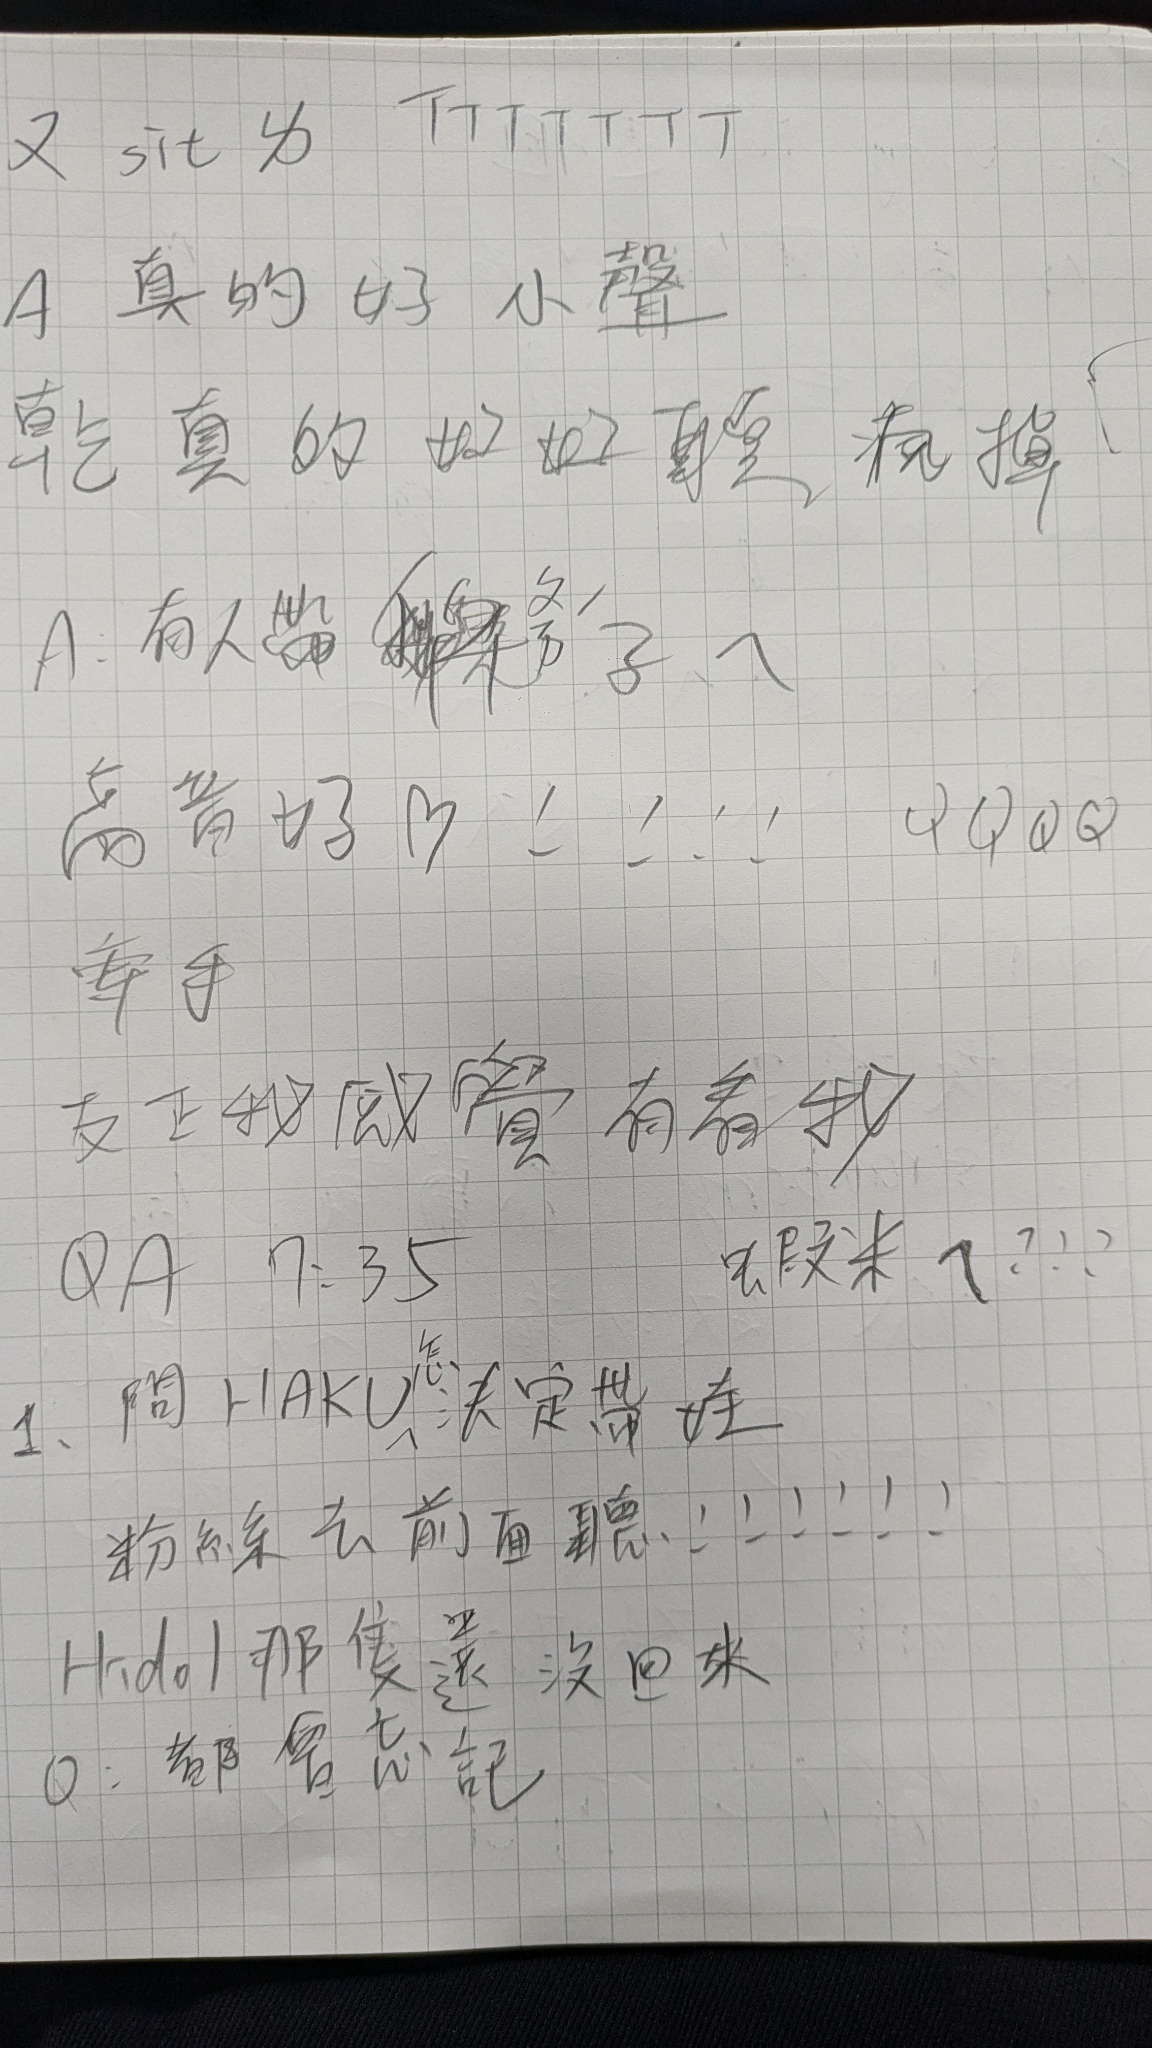 又 sit ㄌ TTTTTTT
A 真的好小聲
乾真的好好聽 瘋掉
A: 有人帶 子ㄟ
高音好ㄇ!!!! QQQQ
牽手
友正我感覺有看我
QA 7:35 蝦米ㄟ???
1、問HAKU怎決定帶娃
粉絲去前面聽!!!!!!
H:dol那隻還沒回來
Q: 都會忘記